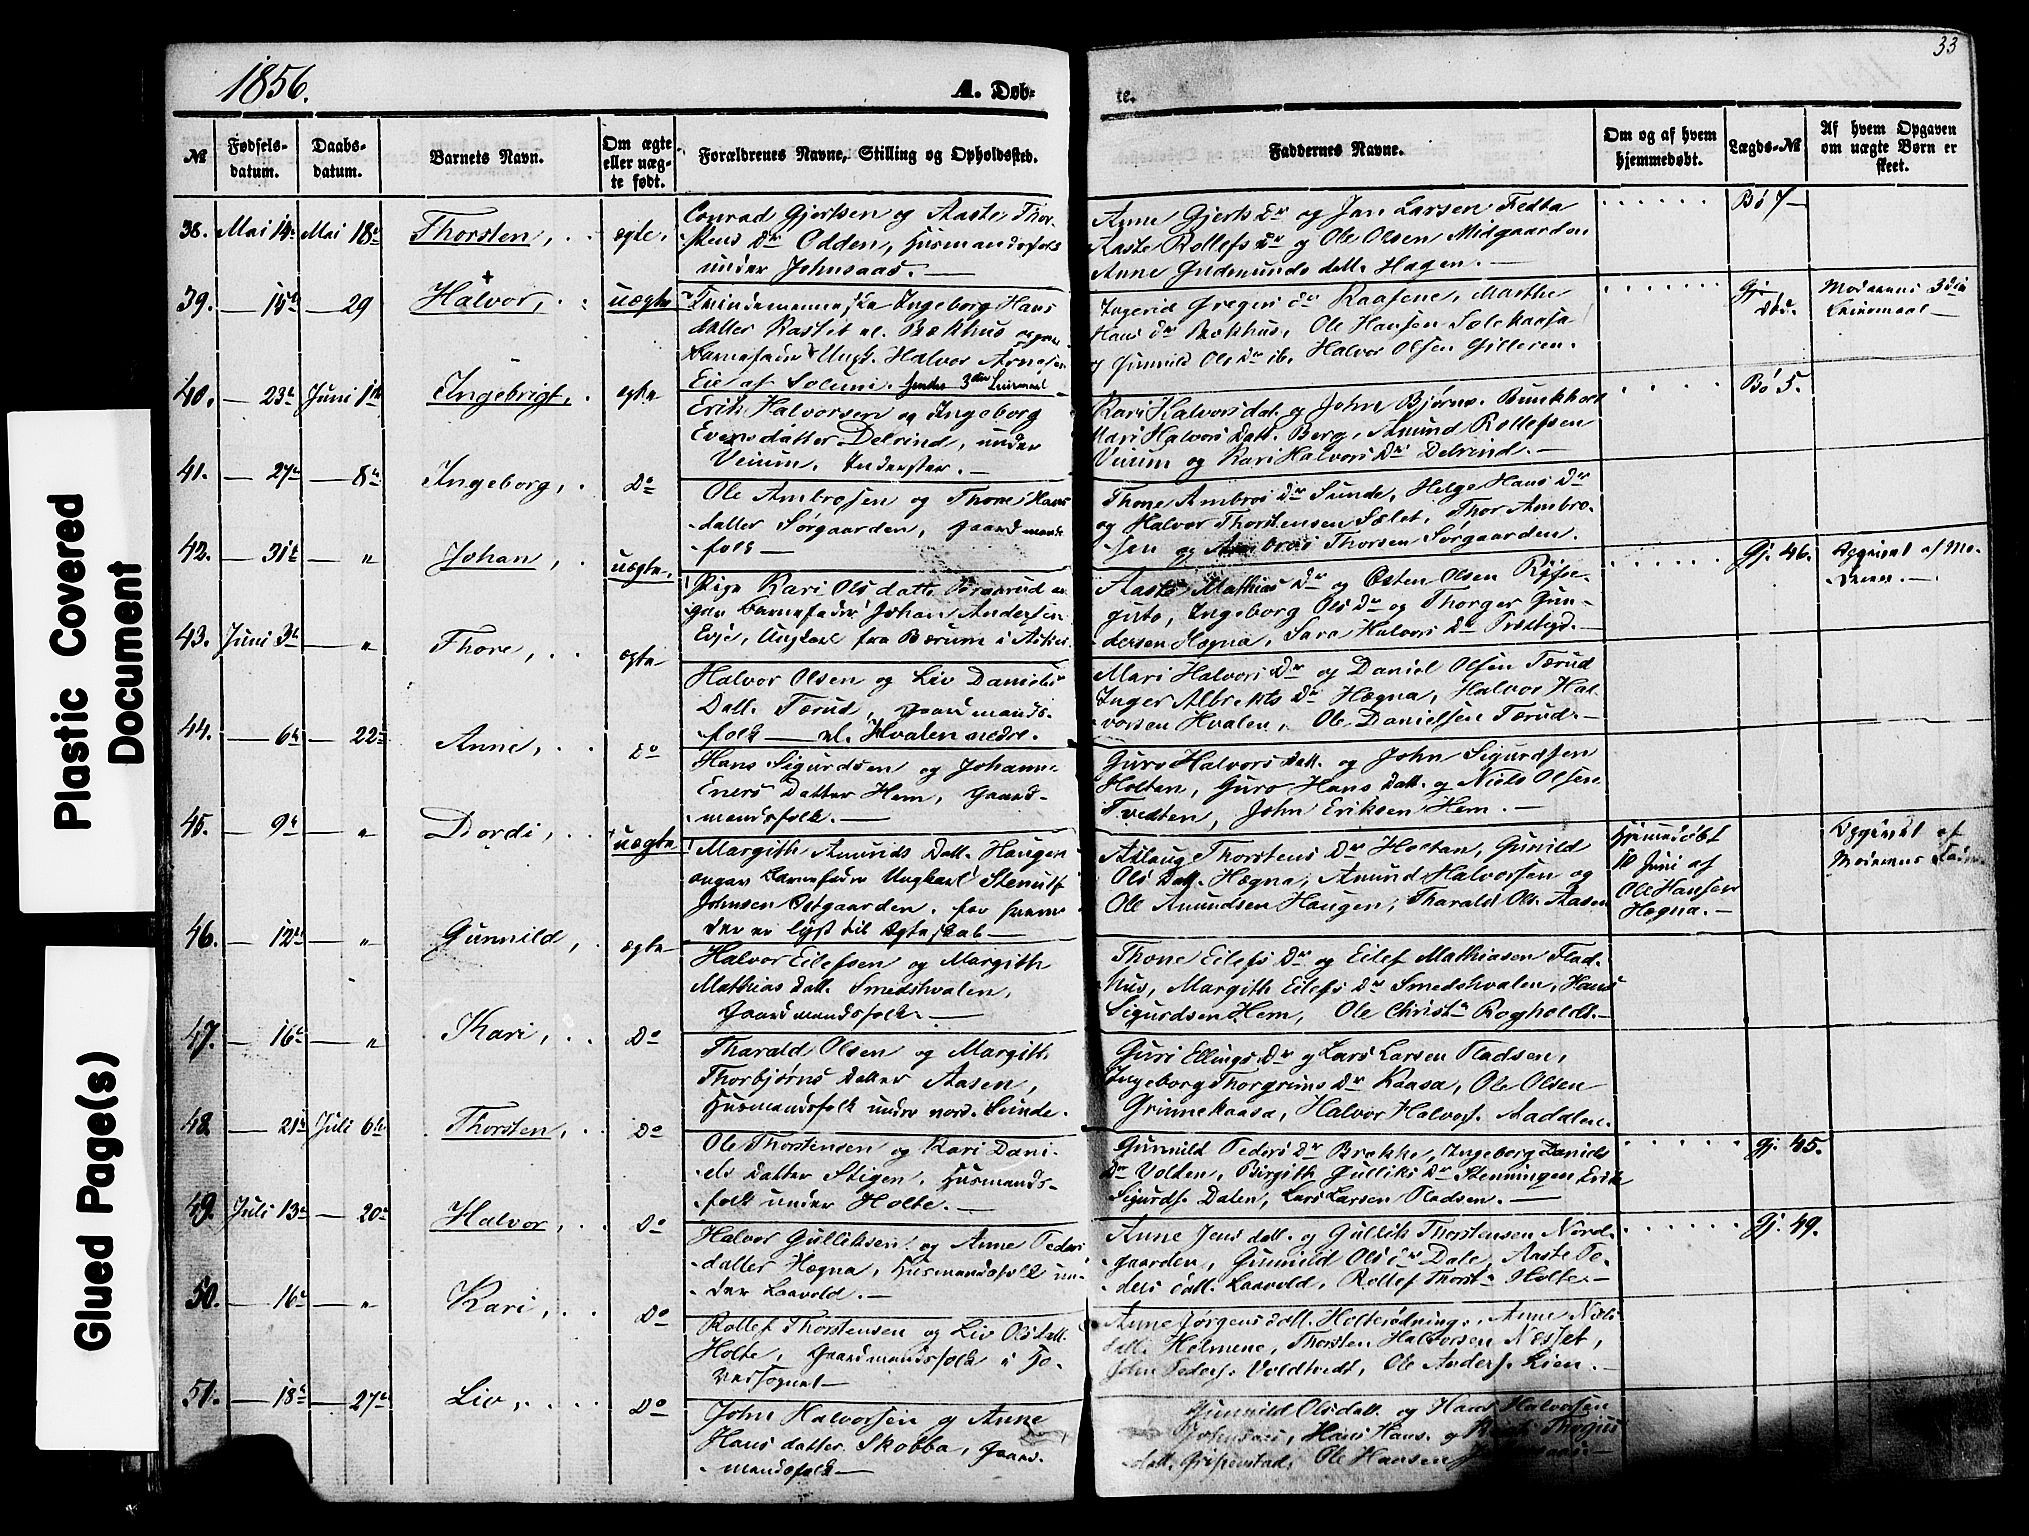 Plastic Covered
Document
Glued Page(s)
33
1856.
A. Døb=
te.
№
Fødsels-
datum.
Daabs-
datum.
Barnets Navn.
Om ægte
eller uæg-
te født.
Forældrenes Navne, Stilling og Opholdssted.
Faddernes Navne.
Om og af hvem
hjemmedøbt.
Lægds-№
Af hvem Opgaven
om uægte Børn er
skeet.
38. Mai 14 Mai 18 Thorsten, ægte,
Conrad Gjertsen og Aaste Thor-
stens Dr Odden, Husmandsfolk
under Johnsaas.
Anne Gjerts Dr og Jan Larsen
Aaste Rollefs Dr og Ole Olsen Midgaarden
Anne Gudmunds datt. Hagen.
Bø 7
39. 15 29 Halvor, uægte
Ingeborg Hans
datter Bækhus
Barnefader Ungk. Halvor Arnesen
Eie af Solum. 3die Leiermaal
Ingerid Gregers Dr Raasene, Marthe
Hans Dr Bækhus, Ole Hansen
og Gunild Ols Dr ib. Halvor Olsen Gilleren.
Moderens 3die
Leiermaal
40. 23 Juni 1ste Ingebrigt, ægte
Erik Halvorsen og Ingeborg
Evensdatter Delrind, under
Veium. Inderster.
Kari Halvors dat. og John Bjørns.
Mari Halvors Datt. Berg, Amund Rollefsen
Veium og Kari Halvors Dr Delrind.
Bø 5.
41. 27 8 Ingeborg, Do
Ole Ambrosen og Thone Hans
datter Sørgaarden, gaardmands-
folk
Thone Ambros Dr Sunde, Helge Hans Dr
og Halvor Thorstensen Sælet, Thor Ambro-
sen og Ambros Thorsen Sørgaarden.
42. 31t " Johan, uægte,
Pige Kari Ols datt.
Barnefader Johan Andersen
Evje, Ungkarl fra Bærum i Asker
Aaste Mathias Dr og Østen Olsen
Ingeborg Ols Dr og Thorger Gun-
dersen Hægna, Sara Halvors Dr
Gj. 46.
Opgivet af Mo-
deren.
43. Juni 3 " Thore, ægte
Halvor Olsen og Liv Daniels
Datt. Tærud, gaardmands-
folk Hvalen nedre.
Mari Halvors Dr og Daniel Olsen Tærud
Inger Albrekts Dr Hægna, Halvor Hal-
vorsen Hvalen, Ole Danielsen Tærud.
44. 6 22 Anne, Do
Hans Sigurdsen og Johanne
Eners Datter Hem, gaard-
mandsfolk.
Guro Halvors datt. og John Sigurdsen
Holtan, Guro Hans datt. og Niels Olsen
Tvedten, John Eriksen Hem.
45. 9 " Dordi, uægte
Margith Amunds Datt. Haugen
Barnefader Ungkarl Stenulf
Johnsen Østgaarden. for hvem
der er lyst til Ægteskab
Aslaug Thorstens Dr Holtan, Gunild
Ols Datt. Hægna, Amund Halvorsen og
Ole Amundsen Haugen, Tharald Ols. Aasen
Hjemmedøbt
10 Juni af
Ole Hansen
Hægna.
Opgivet af
Moderens
46. 12 " Gunnild, ægte
Halvor Eilefsen og Margith
Mathias datt. Smedshvalen,
Gaardmandsfolk.
Thone Eilefs Dr og Eilef Mathiasen Flad-
hus, Margith Eilefs Dr Smedshvalen, Hans
Sigurdsen Hem, Ole Christn Rogholdt.
47. 16 " Kari, Do
Tharald Olsen og Margith
Thorbjørns Datter Aasen,
Husmandsfolk under nord. Sunde.
Guri Ellings Dr og Lars Larsen Pladsen,
Ingeborg Thorgrims Dr Kaasa, Ole Olsen
Grinnekaasa, Halvor Halvors.
48. 21 Juli 6te Thorsten, Do
Ole Thorstensen og Kari Dani-
els Datter Stigen, Husmands-
folk under Holte.
Gunnild Peders Dr Brekke, Ingeborg Daniels
Dr Volden, Birgith Gulliks Dr Stenningen Erik
Sigurds. Dalen, Lars Larsen Pladsen.
Gj. 45.
49. Juli 13 20 Halvor, Do
Halvor Gulliksen og Anne Peders
datter Hægna, Husmandsfolk un-
der Laavold.
Anne Jens datt. og Gullik Thorstensen Nord-
gaarden, Gunnild Ols Dr Dale, Aaste Pe-
ders datt. Laavold, Rollef Thorstn Holte.
Gj. 49.
50. 16 " Kari, Do
Rollef Thorstensen og Liv Ols datt.
Holte, Gaardmandsfolk i Ho-
vedsognet
Anne Jørgens datt. Anne Niels
datt. Helmene, Thorsten Halvorsen Næset,
John Peders. Voldtvedt, Ole Anders. Lien.
51. 18 27 Liv, Do
John Halvorsen og Anne
Hans datter Skobba, Gaard-
mandsfolk
Gunnild Ols datt. og Hans Halvorsen
Hans Hans. og
datt. Ole Hansen